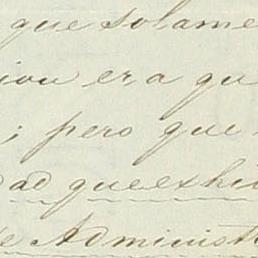 que solame
iou era qu
; pero que
dad que exhi
de Administ